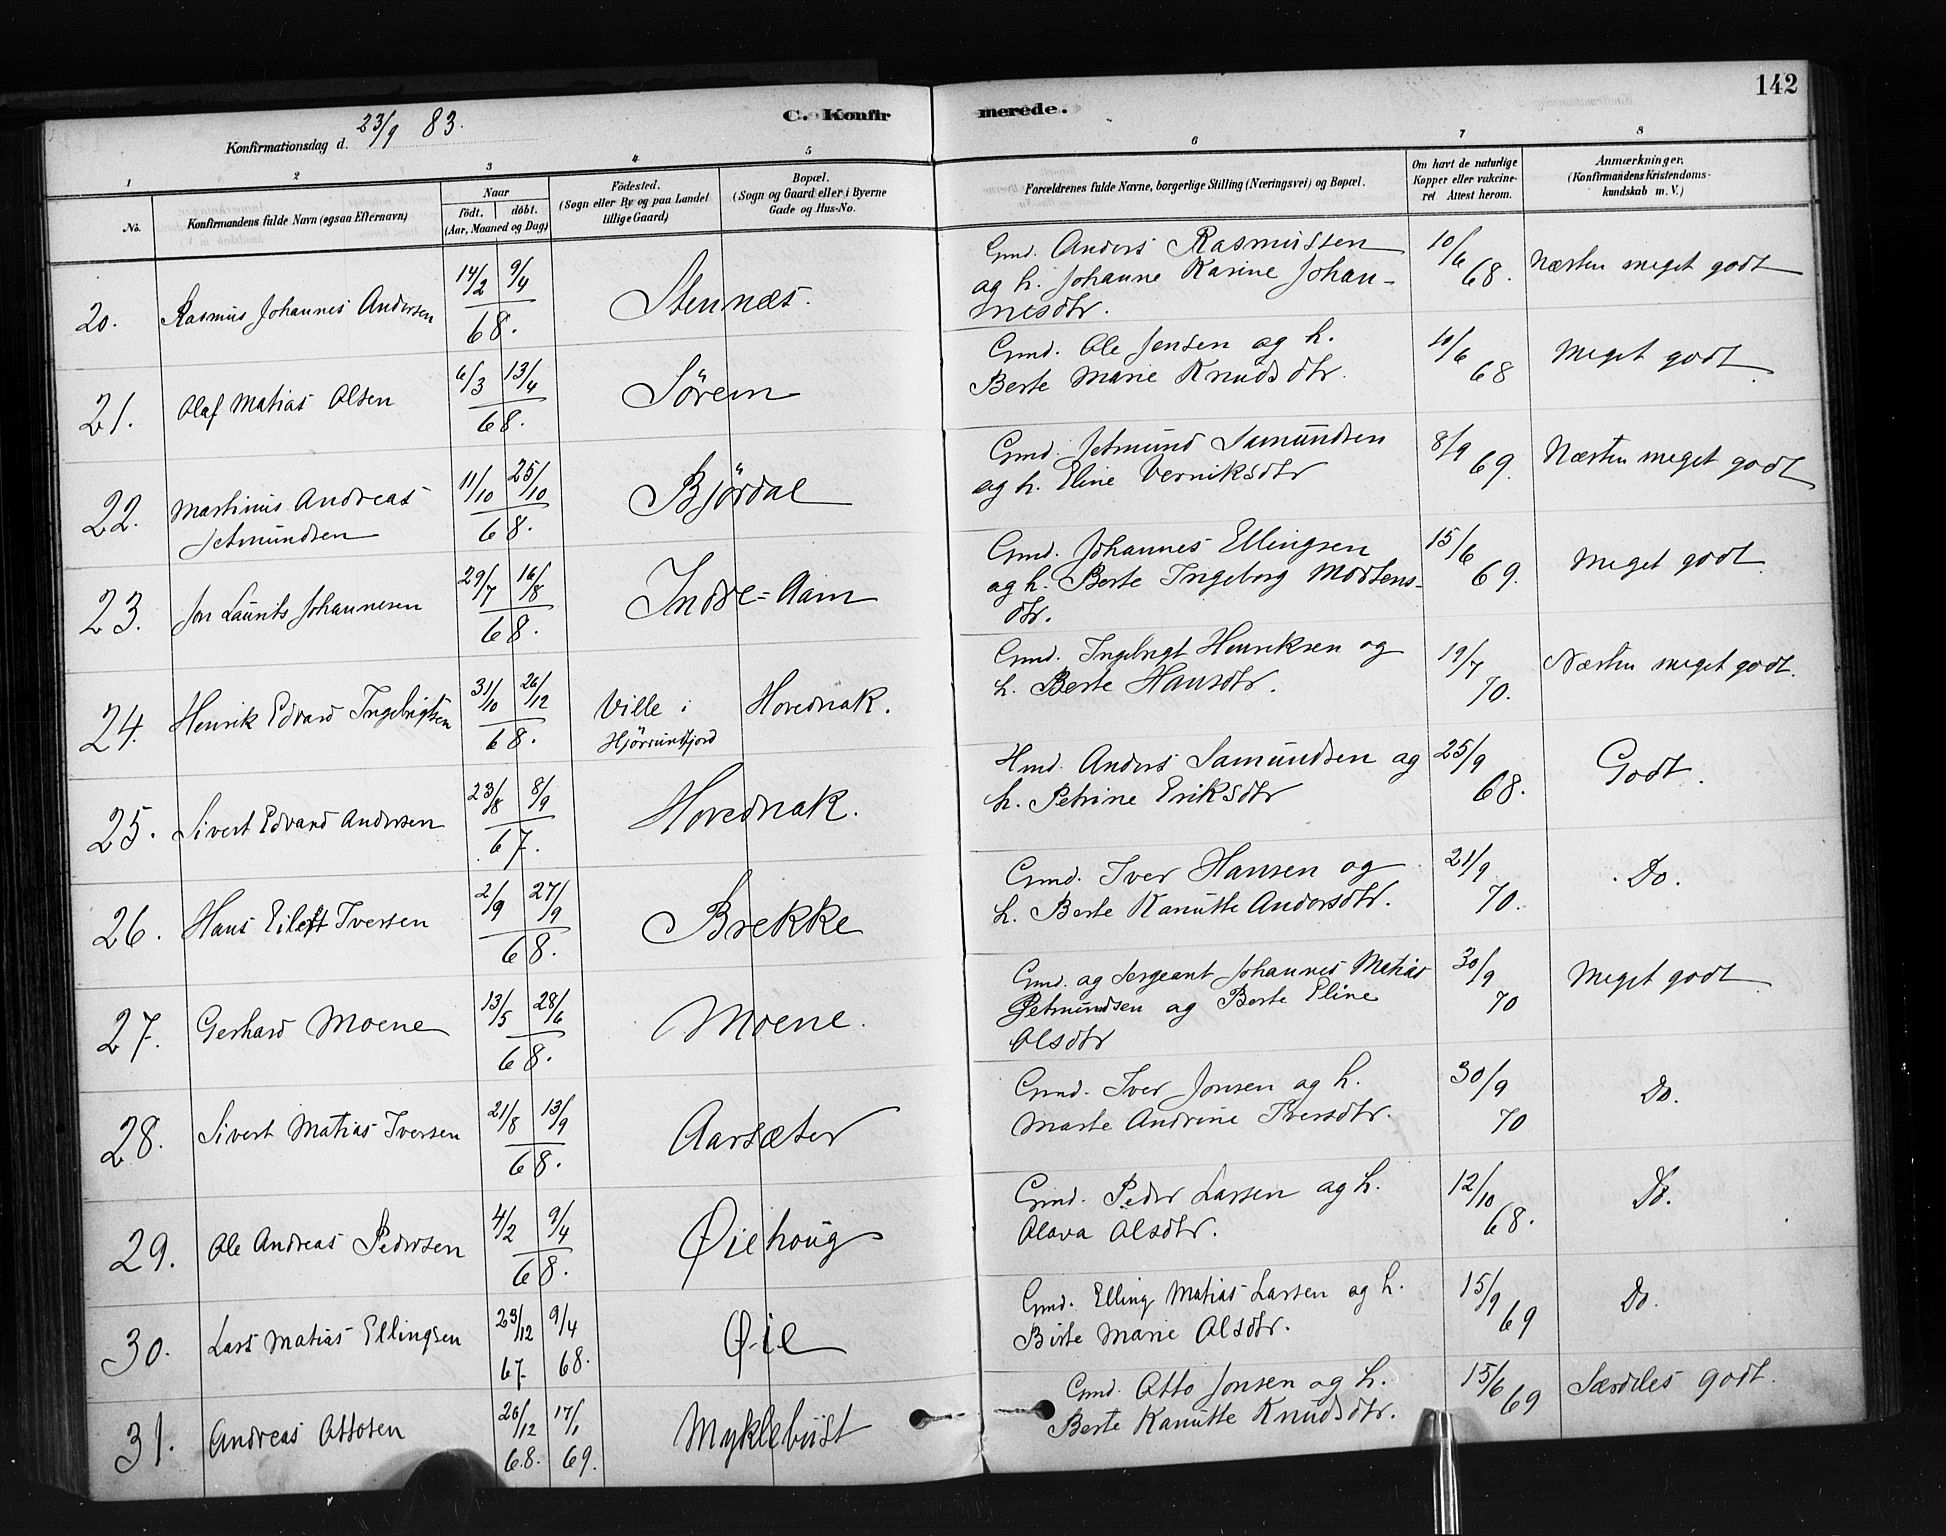 142
C. Konfirmerede.
Konfirmationsdag d. 23/9 83.
1 2 3 4 5 6 7 8
No.
Konfirmandens fulde Navn (ogsaa Efternavn)
Naar
födt. döbt.
(Aar, Maaned og Dag)
Födested.
(Sogn eller By og paa Landet
tillige Gaard)
Bopæl.
(Sogn og Gaard eller i Byerne
Gade og Hus-No.
Forældrenes fulde Navne, borgerlige Stilling (Næringsvei) og Bopæl.
Om havt de naturlige
Kopper eller vakcine-
ret Attest herom.
Anmærkninger.
(Konfirmandens Kristendoms-
kundskab m. V.)
20. Rasmus Johannes Andersen 14/2 9/4 68. Stennæs. Gmd. Anders Rasmussen
ag h. Johanne Karine Johan-
nesdtr. 10/6 68. Næsten meget godt
21. Olaf Matias Olsen 6/3 13/4 68. Sörem Gmd. Ole Jensen ag h.
Berte Marie Knudsdtr. 10/6 68 Meget godt
22. Martinus Andreas
Jetmundsen 11/10 25/10 68. Björdal Gmd. Jetmund Samundsen
ag h. Eline Verniksdtr 8/9 69. Næsten meget godt
23. Jon Launts Johannesen 29/7 16/8 68. Indre-Aam Gmd. Johannes Ellingsen
ag h. Berte Ingeborg Mortens-
dtr. 15/6 69. Meget godt
24. Henrik Edvard Ingebrigtsen 31/10 26/12 68. Ville i
Hjörundfjord Hovednak. Gmd. Ingebrigt Henriksen og
h. Berte Hansdtr. 19/7 70. Næsten meget godt.
25. Sivert Edvard Andersen 23/8 8/9 67. Hovednak. Hmd. Anders Samundsen ag
h. Petrine Eriksdtr 25/9 68. Godt.
26. Hans Eileft Iversen 2/9 27/9 68. Brekke Gmd. Iver Hansen og
h. Berte Kanutte Andersdtr. 21/9 70. Do.
27. Gerhard Moene 13/5 28/6 68. Moene. Gmd. ag Sergeant Johannes Matias
Jetmundsen ag Berte Eline
Olsdtr 30/9 70 Meget godt
28. Sivert Matias Iversen 21/8 13/9 68. Aarsæter Gmd. Iver Jonsen ag h.
Marte Andrine Iversdtr. 30/9 70 Do.
29. Ole Andreas Pedersen 4/2 9/4 68. Øiehoug Gmd. Peder Larsen ag h.
Olava Olsdtr. 12/10 68. Do.
30. Lars Matias Ellingsen 23/12 67 9/4 68. Øie Gmd. Elling Matias Larsen ag h.
Birte Marie Olsdtr. 15/9 69 Do.
31. Andreas Ottosen 26/12 68. 17/1 69. Myklebust Gmd. Otto Jonsen ag h.
Berte Kanutte Knudsdtr. 15/6 69 Særdeles godt.